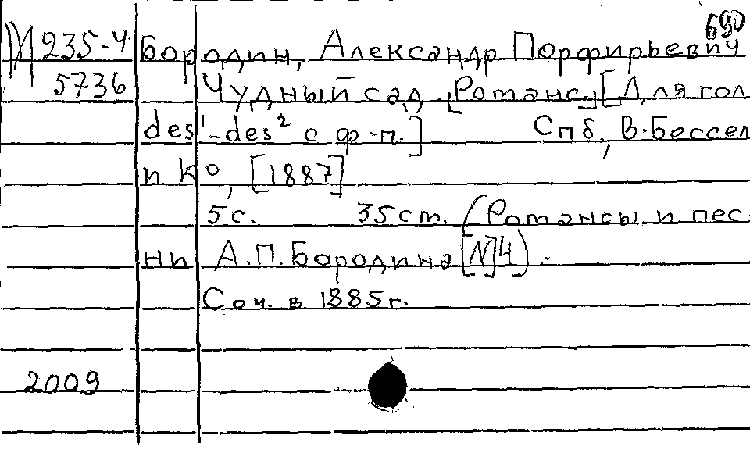 690
М 235-4 Бородин, Александр Порфирьевич
5736 Чудный сад. [Романс.] [Для гол.
des¹-des² с ф-п.] Спб, В. Бессел
и К°, [1887]
5 с. 35 см. (Романсы и пес
ни А.П. Бородина [№]4).
Соч. в 1885 г.
2009